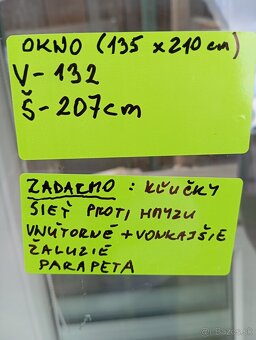 OKNO (135 x 210 cm)
V - 132
Š - 207cm
ZADARMO : KĽUČKY
SIEŤ PROTI HMYZU
VNÚTORNÉ + VONKAJŠIE
ŽALUZIE
PARAPETA